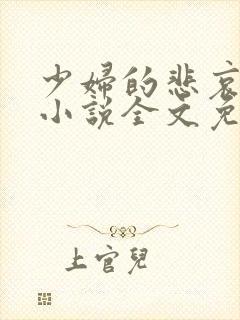 少婦的悲哀
小說全文免
上官兒